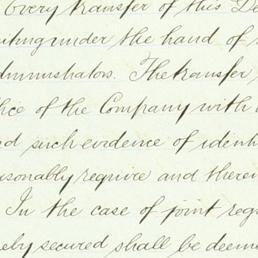 Every transfer of this De
iting under the hand of
dministrators. The transfer
fice of the Company with
nd such evidence of identi
asonably require and therei
In the case of joint reg
reby secured shall be deeme